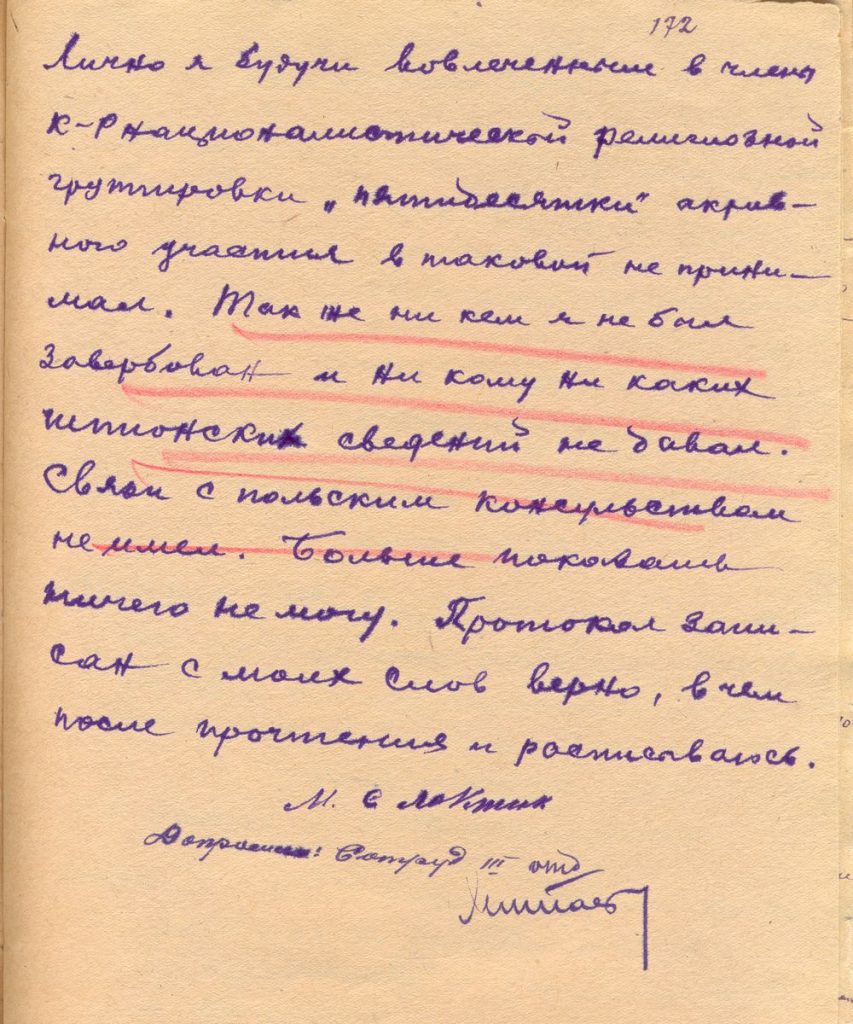 172
Лично я будучи вовлеченным в члены
к-р националистической религиозной
группировки „пятидесятки" актив-
ного участия в таковой не прини-
мал. Так же ни кем я не был
завербован и ни кому ни каких
шпионских сведений не давал.
Связи с польским консульством
не имел. Больше показать
ничего не могу. Протокол запи-
сан с моих слов верно, в чем
после прочтения и расписываюсь.
М. С Локтик
Допросил: Сотруд III отд